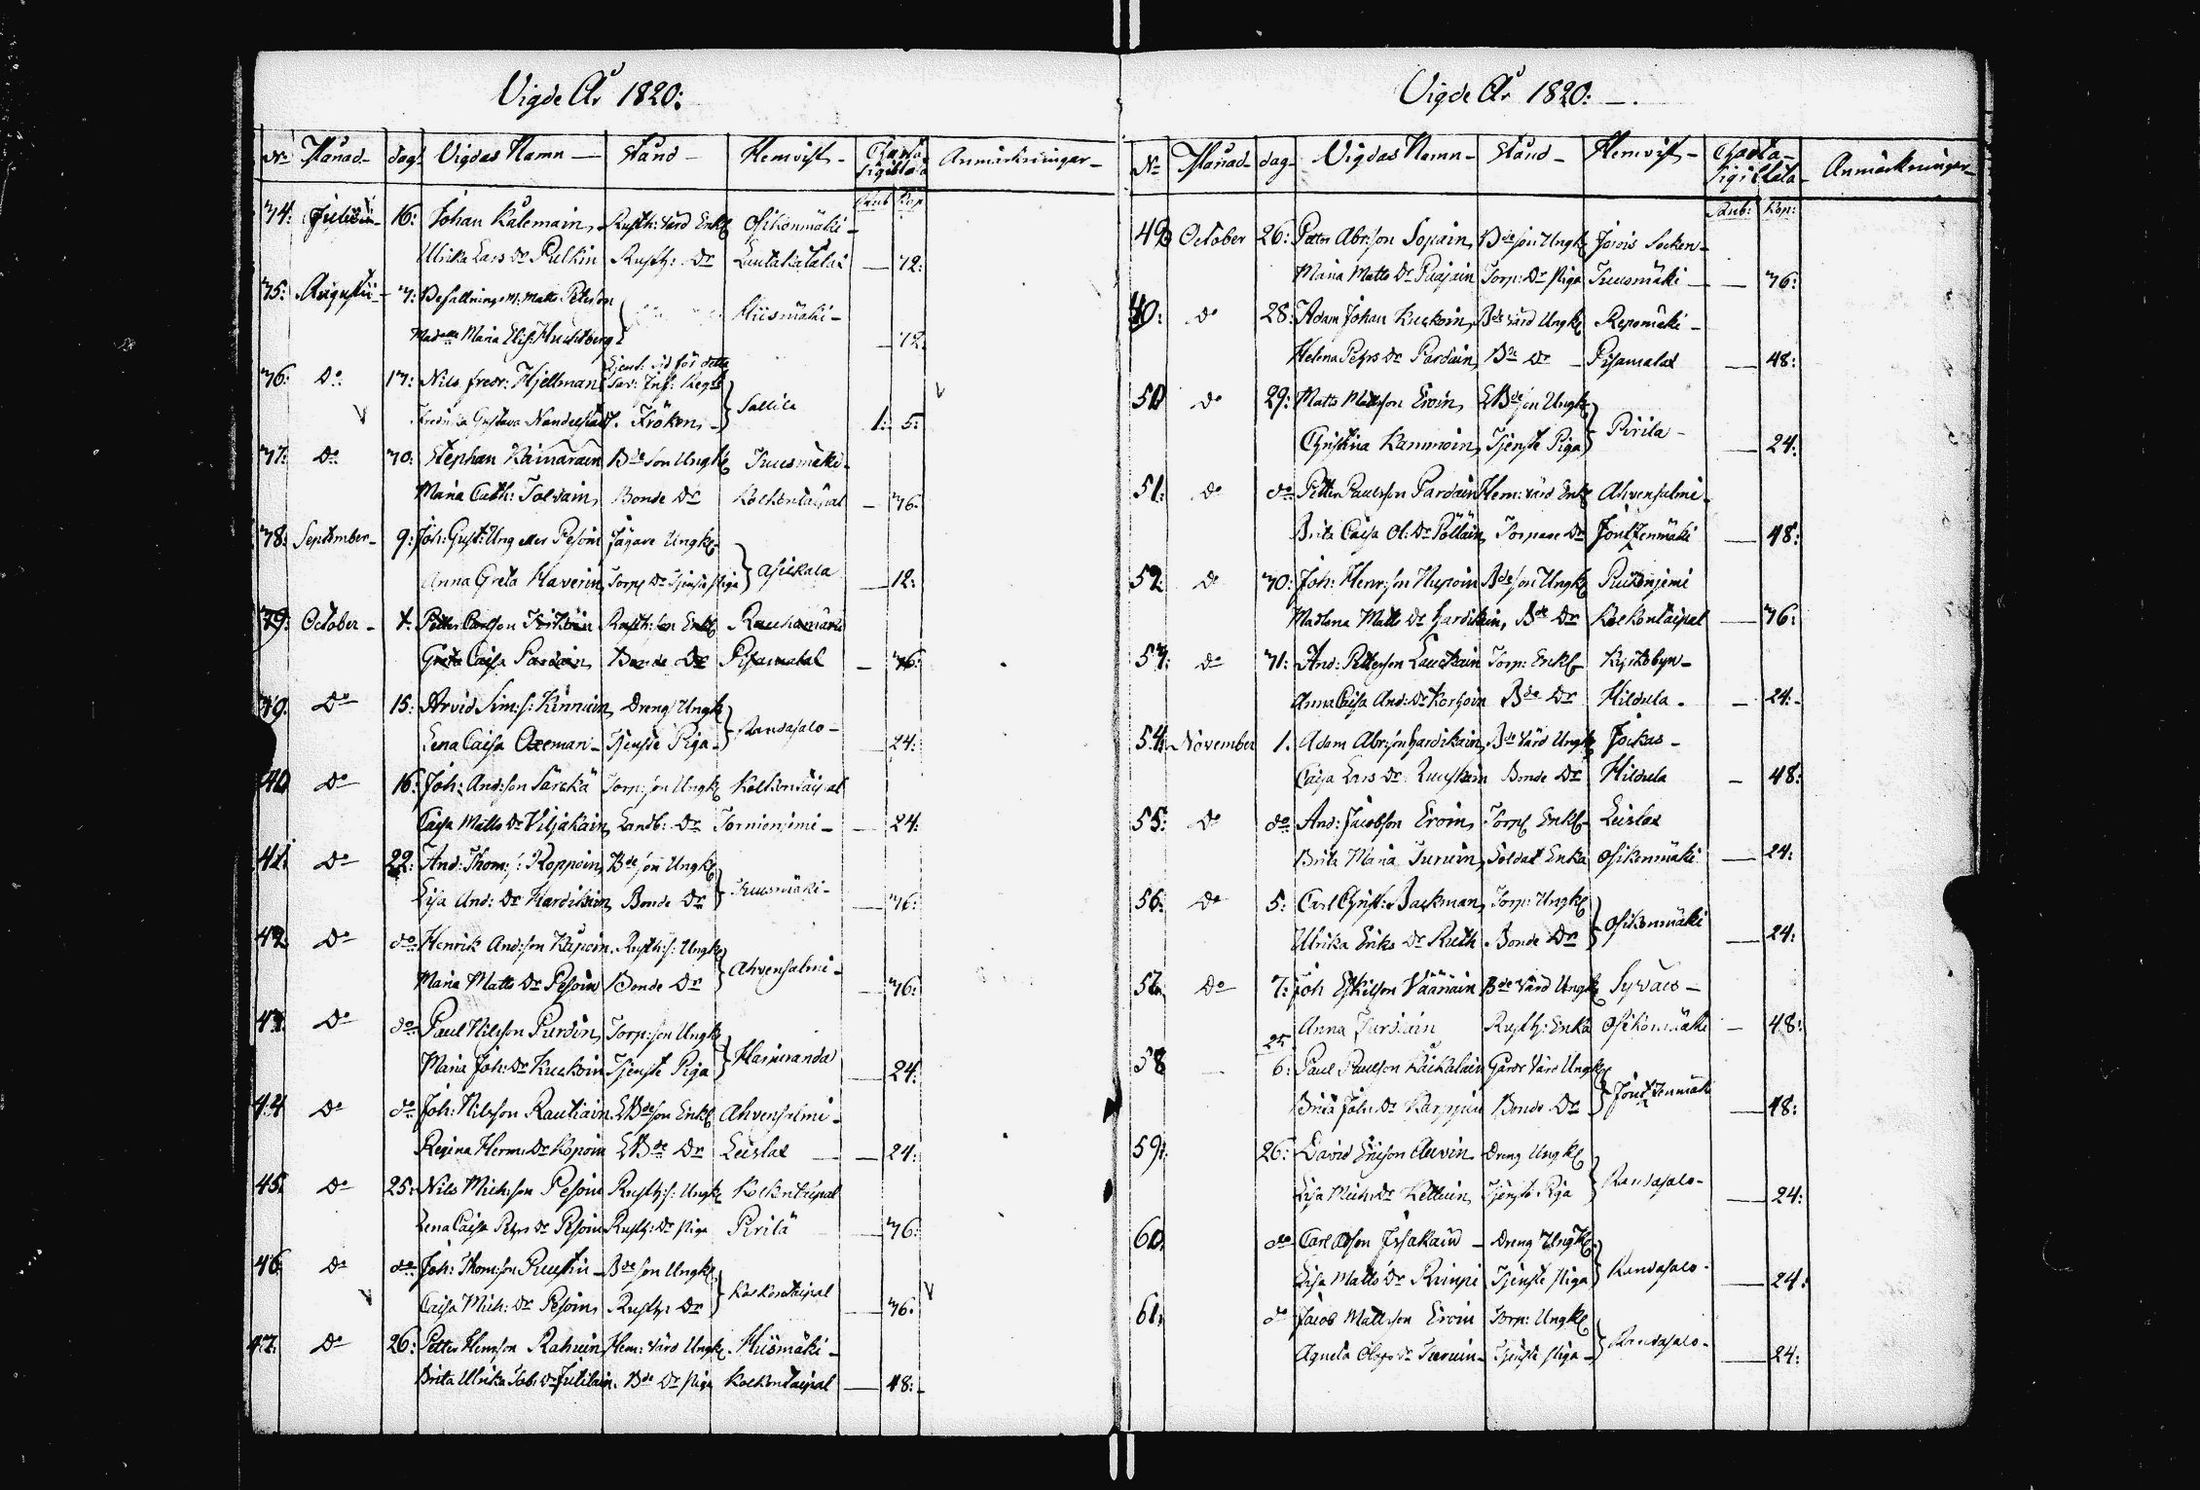 Vigde År 1820:
No Månad dag Vigdas Namn Stånd Hemvist Charta Sigillata Anmärkningar
Rub Kop
34. 16: Johan Rusth: Värd Enkl Osikonmäki
Ulrika Lars Dr Pulkin Rusth: Dr 12:
35: Augusti 3: Befallningsm: Matts Peterson Hiismäki
Maria 12:
36: Do 17: Nils Fredr: Hjellman
Gustava Fröken Sallila 1: 5:
37: Do 30: Stephan Bde Son Ungkl Kuusmäki
Maria Cath: Tolvain Bonde Dr Kolkontaipal 36:
38: September 9: Joh: Gust: Ung Pesoni Jägare Ungkl
Anna Greta Haverin Torp Dr Tjenste Piga Asikala 12:
39: October Petter Rusth: Son Enkl Rauhamäki
Greta Caisa Pardain Bonde Dr Pisamalax 36:
39. Do 15: Arvid Sim: s: Kinnuin Dreng Ungkl
Lena Caisa Tjenste Piga Randasalo 24:
40 Do 16: Joh: And:son Särckä Torp: son Ungkl Kolkontaipal
Caisa Matts Dr Viljakain Landb: Dr Torniemi 24:
41: Do 22: And: Thom: s: Roppoin Bde Son Ungkl
Lisa And: Dr Hardikain Bonde Dr Kuusmäki 36:
42 Do do Henrik And:son Rusth: s: Ungkl
Maria Matts Dr Pesoin Bonde Dr Ahvensalmi 36:
43. Do do Paul Nilsson Purdin Torp: son Ungkl
Maria Joh: Dr Kuckoin Tjenste Piga Harjuranda 24:
44 Do do Joh: Nilsson Rautiain Son Enkl Ahvensalmi
Regina Herm: Dr Kopoin Dr Leislax 24:
45. Do 25: Nils Michsson Pesoin Rusth: s: Ungkl Kolkontaipal
Lena Caisa Petrs Dr Pesoin Rusth: Dr Piga Pirilä 36:
46 Do do Joh: Thom:son Puustin Bde Son Ungkl
Caisa Mich: Dr Pesoin Rusth: Dr Kolkontaipal 36:
47: Do 26: Petter Henrsson Rahuin Hem: Värd Ungkl Hiismäki
Brita Ulrika Dr Bde Dr Piga Kolkontaipal 48:
Vigde År 1820:
No Månad dag Vigdas Namn Stånd Hemvist Charta Sigillata Anmärkningar
Rub: Kop:
48 October 26: Petter Abr:son Bde Son Ungkl Jorois Socken
Maria Matts Dr Torp: Dr Piga Kuusmäki 36:
49: do 28: Adam Johan Kuckoin Bde Värd Ungkl Repomäki
Helena Petrs Dr Pardain Bde Dr Pisamalax 48:
50 do 29: Matts Mattsson Eroin Son Ungkl
Christina Kammoin Tjenste Piga Pirilä 24:
51: do do Petter Paulsson Pardain Hem: Värd Enkl Ahvensalmi
Brita Caisa Ol: Dr Pöllän Torpare Dr 48:
52: do 30: Joh: Henr:son Hupoin Bde Son Ungkl
Madlena Matts Dr Hardikain Bde Dr Kolkontaipal 36:
53: do 31: And: Petterson Lauckain Torp: Enkl Kyrkobyn
Anna Caisa And: Dr Korhoin Bde Dr Hildula 24:
54: November 1. Adam Abr:son Hardikain Bde Värd Ungkl Jockas
Caisa Lars Dr Bonde Dr Hildula 48:
55: do do And: Jacobson Eroin Torp Enkl Leislax
Brita Maria Turuin Soldat Enka Osikonmäki 24:
56: do 5: Carl Christ: Backman Torp: Ungkl
Ulrika Eriks Dr Ruth Bonde Dr Osikonmäki 24:
57. Do 7: Joh Eskilson Väänäin Bde Värd Ungkl Syväis
Anna Rusth: Enka Osikonmäki 48:
25
58 6: Paul Paulson Gårds Värd Ungkl
Brita Joh: Dr Karppin Bonde Dr 48:
59: 26: David Ericson Auvin Dreng Ungkl
Lisa Michs Dr Tjenste Piga Randasalo 24:
60 do Carl Dreng Ungkl
Lisa Matts Dr Rimpi Tjenste Piga Randasalo 24:
61: do Jacob Mattsson Eroin Torp: Ungkl
Agneta Olofs Dr Turuin Tjenste Piga Randasalo 24: